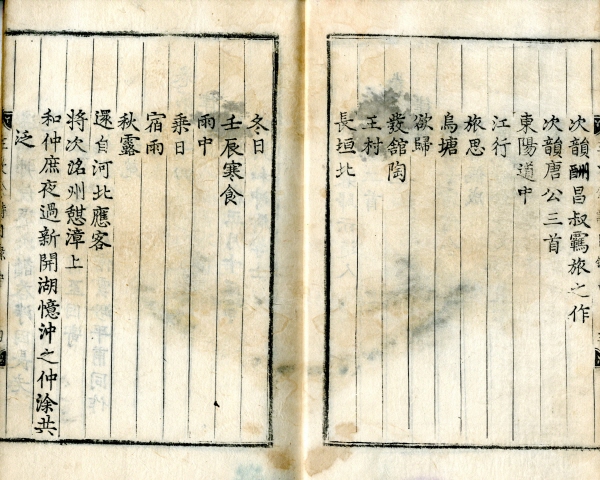 次韻酬昌叔羈旅之作
次韻唐公三首
東陽道中
江行
旅思
烏塘
欲歸
發館陶
王村
長垣北
冬日
壬辰寒食
雨中
乘日
宿雨
秋露
還自河北應客
將次洺州憇漳上
和仲庶夜過新開湖憶沖之仲涂共
泛